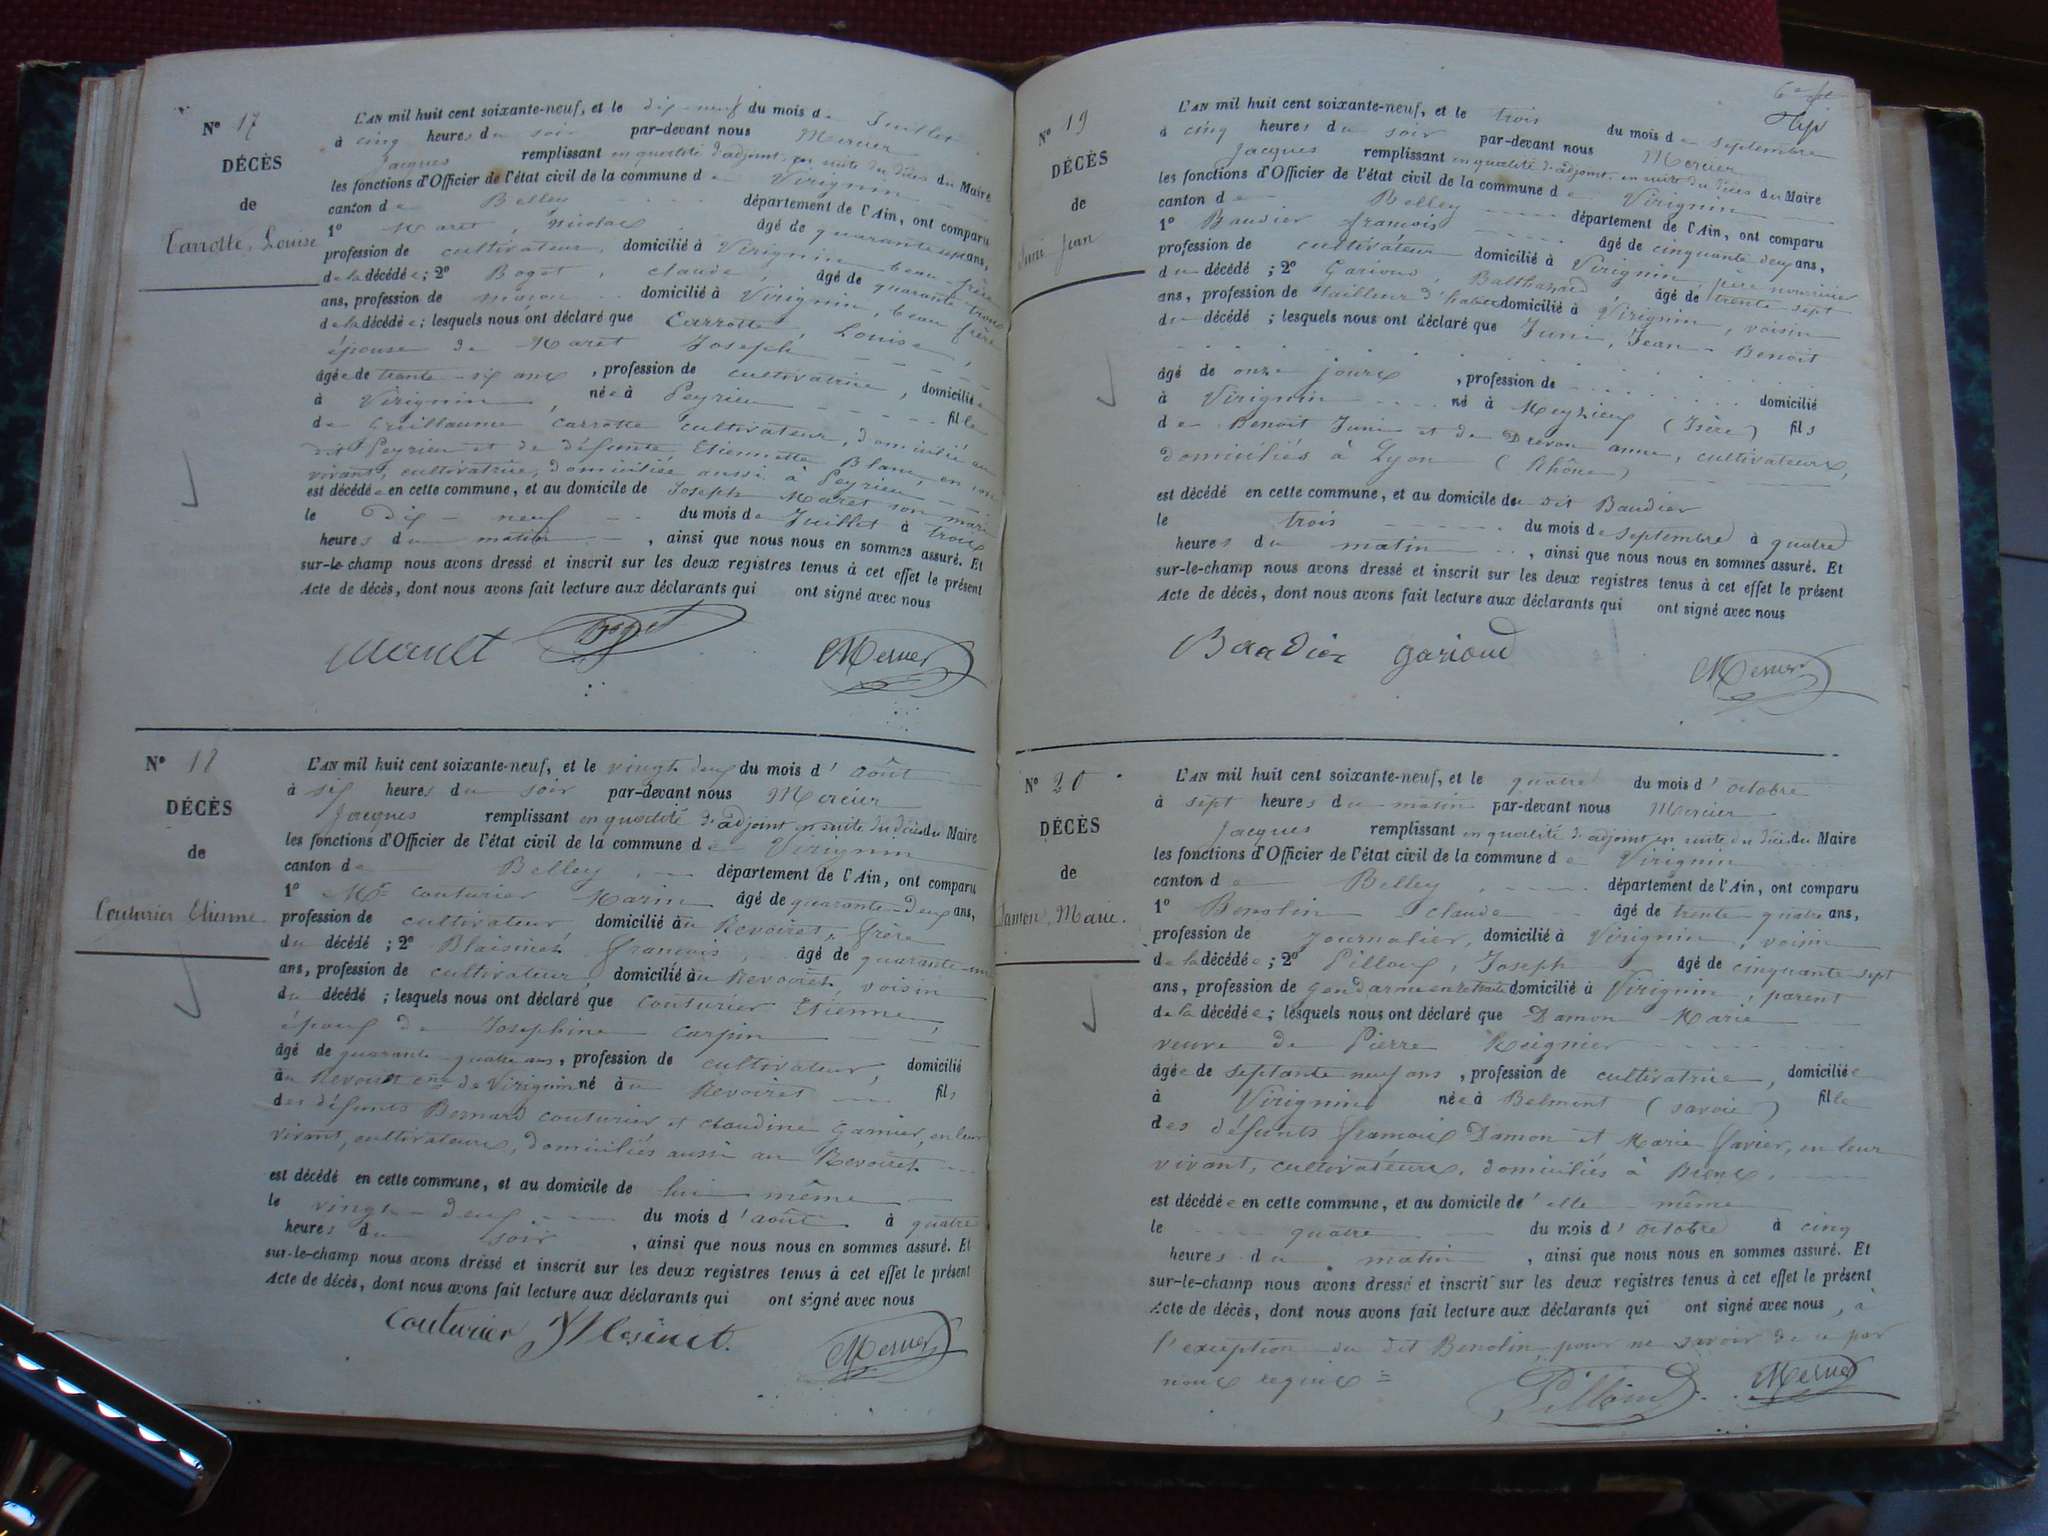 N° 17
DÉCÈS
de
Carrotte, Louise
L'AN mil huit cent soixante-neuf, et le dix-neuf du mois de Juillet
à cinq heures du soir par-devant nous Mercier
Jacques remplissant en qualité d'adjoint, en suite du décès du Maire
les fonctions d'Officier de l'état civil de la commune de Virignin
canton de Belley département de l'Ain, ont comparu
1° Maret, Nicolas âgé de quarante sept ans,
profession de cultivateur, domicilié à Virignin beau-frère
de la décédée; 2° Boget, Claude, âgé de quarante-trois
ans, profession de maçon domicilié à Virignin, beau frère
de la décédée; lesquels nous ont déclaré que Carrotte, Louise,
épouse de Maret Joseph
âgée de trente-six ans, profession de cultivatrice, domiciliée
à Virignin, née à Peyrieu fille
de Guillaume Carrotte cultivateur, domicilié au
dit Peyrieu et de défunte Etiennette Blanc, en son
vivant, cultivatrice, domiciliée aussi à Peyrieu
est décédée en cette commune, et au domicile de Joseph Maret son mari
le dix-neuf du mois de Juillet à trois
heures du matin, ainsi que nous nous en sommes assuré. Et
sur-le-champ nous avons dressé et inscrit sur les deux registres tenus à cet effet le présent
Acte de décès, dont nous avons fait lecture aux déclarants qui ont signé avec nous
Boget Mercier
N° 18
DÉCÈS
de
Couturier Etienne
L'AN mil huit cent soixante-neuf, et le vingt deux du mois d'août
à six heures du soir par-devant nous Mercier
Jacques remplissant en qualité d'adjoint en suite du décès du Maire
les fonctions d'Officier de l'état civil de la commune de Virignin
canton de Belley, département de l'Ain, ont comparu
1° Mr Couturier Marin âgé de quarante-deux ans,
profession de cultivateur, domicilié au Revoiret, frère
du décédé; 2° Blaisinet françois, âgé de quarante-un
ans, profession de cultivateur, domicilié au Revoiret, voisin
du décédé; lesquels nous ont déclaré que Couturier Etienne,
époux de Josephine Carpin
âgé de quarante-quatre ans, profession de cultivateur, domicilié
au Revoiret cne de Virignin né au Revoiret fils
des défunts Bernard Couturier et Claudine Garnier, en leur
vivant, cultivateurs, domiciliés aussi au Revoiret
est décédé en cette commune, et au domicile de lui même
le vingt-deux du mois d'août à quatre
heures du soir, ainsi que nous nous en sommes assuré. Et
sur-le-champ nous avons dressé et inscrit sur les deux registres tenus à cet effet le présent
Acte de décès, dont nous avons fait lecture aux déclarants qui ont signé avec nous
Couturier Mercier
N° 19
DÉCÈS
de
Juni Jean
L'AN mil huit cent soixante-neuf, et le trois du mois de septembre
à cinq heures du soir par-devant nous Mercier
Jacques remplissant en qualité d'adjoint, en suite du décès du Maire
les fonctions d'Officier de l'état civil de la commune de Virignin
canton de Belley département de l'Ain, ont comparu
1° Baudier françois âgé de cinquante deux ans,
profession de cultivateur domicilié à Virignin, père nourricier
du décédé; 2° Garioud, Balthazard, âgé de trente-sept
ans, profession de tailleur d'habits domicilié à Virignin, voisin
du décédé; lesquels nous ont déclaré que Juni, Jean-Benoit
âgé de onze jours, profession de domicilié
à Virignin né à Meyzieux (Isère) fils
de Benoit Juni et de Drevon anne, cultivateurs,
domiciliés à Lyon (Rhône)
est décédé en cette commune, et au domicile du dit Baudier
le trois du mois de septembre à quatre
heures du matin, ainsi que nous nous en sommes assuré. Et
sur-le-champ nous avons dressé et inscrit sur les deux registres tenus à cet effet le présent
Acte de décès, dont nous avons fait lecture aux déclarants qui ont signé avec nous
Baudier Garioud Mercier
N° 20
DÉCÈS
de
Damon, Marie.
L'AN mil huit cent soixante-neuf, et le quatre du mois d'octobre
à sept heures du matin par-devant nous Mercier
Jacques remplissant en qualité d'adjoint en suite du décès du Maire
les fonctions d'Officier de l'état civil de la commune de Virignin
canton de Belley, département de l'Ain, ont comparu
1° Benolin Claude âgé de trente-quatre ans,
profession de Journalier, domicilié à Virignin, voisin
de la décédée; 2° Pilloux, Joseph âgé de cinquante-sept
ans, profession de gendarme en retraite domicilié à Virignin, parent
de la décédée; lesquels nous ont déclaré que Damon Marie
veuve de Pierre Reignier
âgée de septante neuf ans, profession de cultivatrice, domiciliée
à Virignin née à Belmont (savoie) fille
des défunts françois Damon et Marie Favier, en leur
vivant, cultivateurs, domiciliés à
est décédée en cette commune, et au domicile d'elle-même
le quatre du mois d'octobre à cinq
heures du matin, ainsi que nous nous en sommes assuré. Et
sur-le-champ nous avons dressé et inscrit sur les deux registres tenus à cet effet le présent
Acte de décès, dont nous avons fait lecture aux déclarants qui ont signé avec nous, à
l'exception du dit Benolin, pour ne savoir de ce par
nous requis =
Mercier